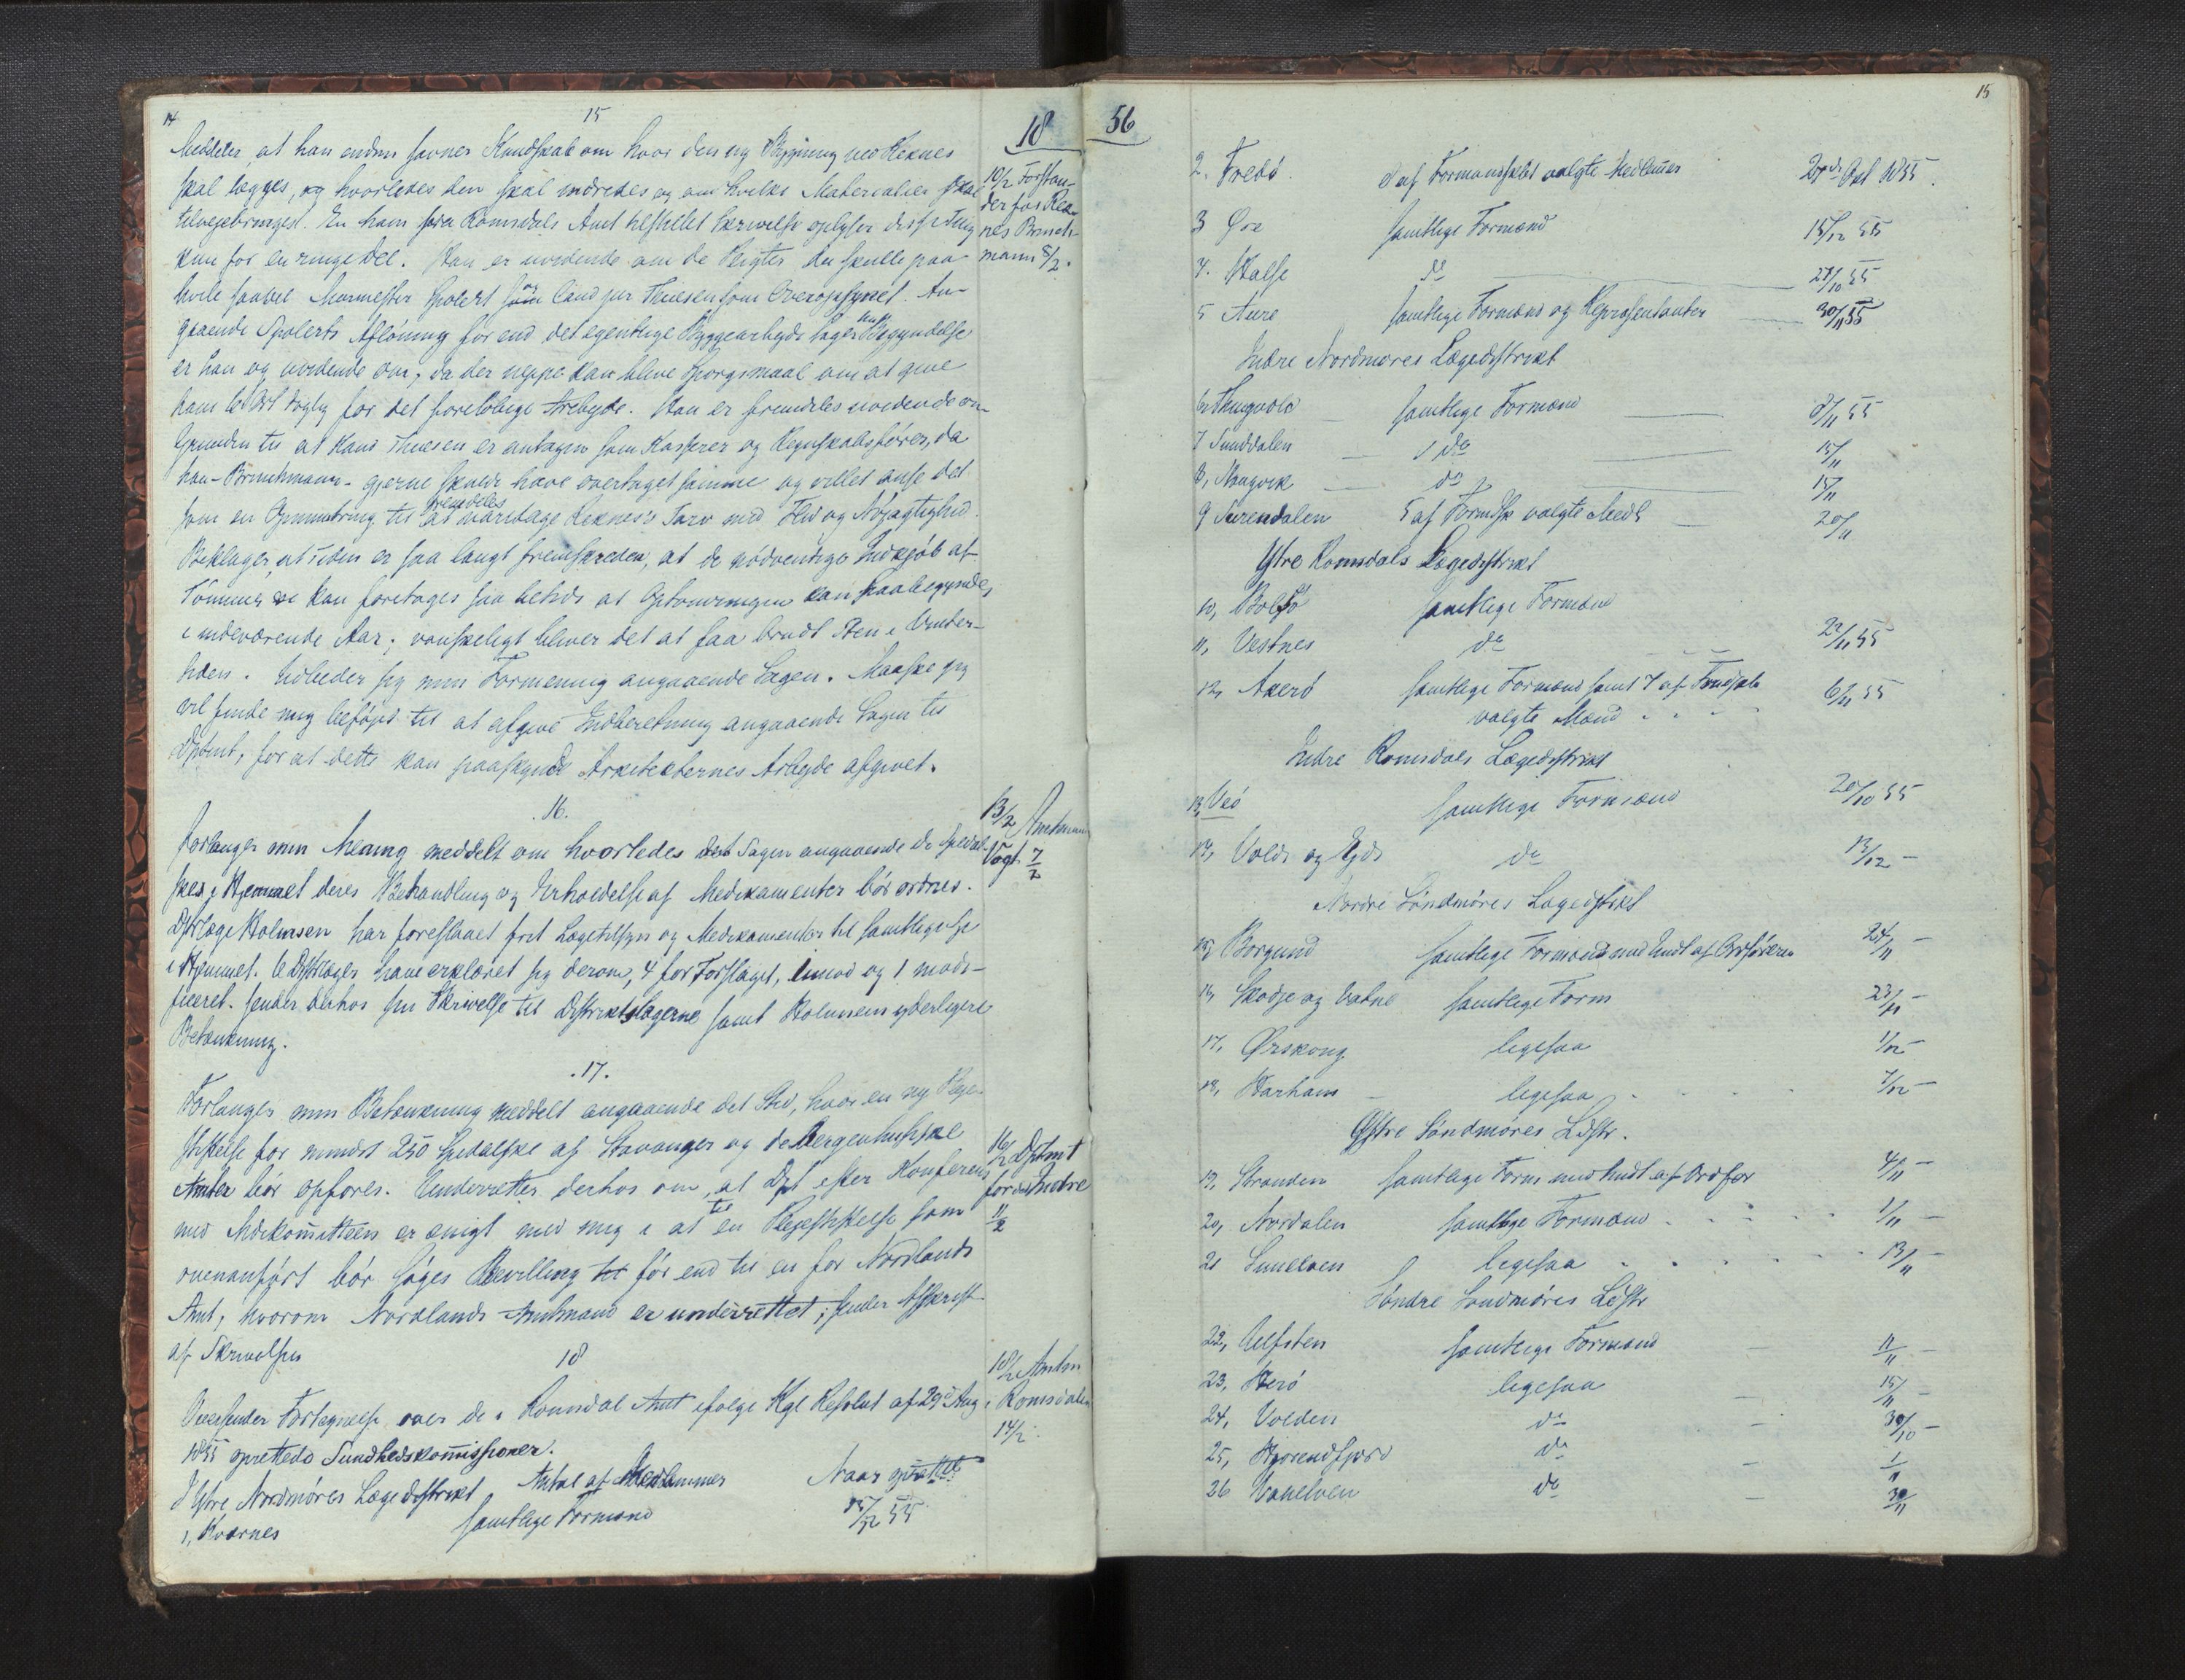 14
15
18
Meddeler, at han endnu savner Kundskab om hvor den ny Bygning ved Reknes
skal lægges, og hvorledes den skal indredes og om hvilke Materialier skal
tilvejebringes. En ham fra Romsdals Amt tilstillet Skrivelse oplyser disse Ting
kun for en ringe Del. Han er uvidende om de Pligter der skulle paa-
hvile saavel Murmester Spolert som Cand jur Thuesen som Overopsynet. An-
gaaende Spolerts Aflønning før end det egentlige Byggearbejde tager sin Begyndelse
er han og uvidende om, da der neppe kan blive Spørgsmaal om at give
ham daglig for det foreløbige Arbejde. Han er fremdeles uvidende om
Grunden til at Kand Thuesen er antagen som Kasserer og Regnskabsfører, da
han - Brinchmann - gjerne skulde have overtaget samme og villet anse det
som en Opmuntring til fremdeles at varetage Reknes's Tarv med Flid og Nøjagtighed.
Beklager, at Tiden er saa langt fremskreden, at de nødvendige Indkjøb af
Tømmer ei kan foretages saa betids at Optømringen kan paabegyndes
i indeværende Aar; vanskeligt bliver det at faa brudt Sten i Vinter-
tiden. Udbeder sig min Formening angaaende Sagen. Maaske jeg
vil finde mig beføjet til at afgive Indberetning angaaende Sagen til
Dptmt, for at dette kan paaskynde Arkitekternes Arbejde afgivet.
10/2 Forstan-
der for Rek-
nes Brinch-
mann 5/2.
.16.
Forlanger min Mening meddelt om hvorledes Sagen angaaende de Spedal-
skes i Hjemmet deres Behandling og Erholdelse af Medikamenter bør ordnes.
Dstrlæge Holmsen har foreslaaet frit Lægetilsyn og Medikamenter til samtlige Sp
i Hjemmet. 6 Dstrlæger have erklæret sig derom, 4 for Forslaget, 1 imod og 1 modi-
ficeret. Sender derhos sin Skrivelse til Distriktslægerne samt Holmsens yderligere
Betænkning.
13/2 Amtmann
Vogt 7/2
.17.
Forlanger min Betænkning meddelt angaaende det Sted, hvor en ny Pleje-
stiftelse for mindst 250 Spedalske af Stavanger og de Bergenhusiske
Amter bør opføres. Underretter derhos om, at Dpt efter Konferens
med Medkomitteen er enigt med mig i at til en Plejestiftelse som
ovenanført bør søges Bevilling før end til en for Nordlands
Amt, hvorom Nordlands Amtmand er underrettet; sender Afskrift
af Skrivelsen
16/2 Dptmt
for det Indre
11/2
18
Oversender Fortegnelse over de i Romsdal Amt ifølge Kgl Resolut af 29d Aug
1855 oprettede Sundhedskommissioner.
I Ytre Nordmøres Lægedistrikt. Antal af Medlemmer Naar oprettet
1, Kværnes samtlige Formænd 15/12 55
18/2 Amtm
i Romsdalen
14/2.
56
15
2. Frebø. af Formandskbt valgte Medlemmer 27d Okt 1855.
3 Øre samtlige Formænd 15/12 55
4. Halse do 27/10 55
5 Aure samtlige Formænd og Repræsentanter 30/11 55
Indre Nordmøres Lægedistrikt
6, Thingvold samtlige Formænd 8/11 55
7 Sunddalen do 15/11
8, Stangvik do 15/11
9 Surendalen 5 af Formdsk valgte Medl 20/11
Ytre Romsdals Lægedistrikt
10, Bolsø samtlige Formænd
11, Vestnes do 22/11 55
12, Akerø samtlige Formænd samt 7 af Formdsk
valgte Mænd 6/11 55
Indre Romsdals Lægedistrikt
13, Veø samtlige Formænd 20/10 55
14, Vold og Ejd do 13/12 -
Nordre Søndmøres Lægedistrikt
15, Borgund samtlige Formænd med Undt af Ordføreren 24/11 -
16, Skodje og Vatne samtlige Form 23/11 -
17, Ørskoug ligesaa 1/12 -
18, Harham ligesaa 7/12 -
Østre Søndmøres Ldstr.
19, Stranden samtlige Form med Undt af Ordfør 4/11 -
20, Nordalen samtlige Formænd 1/11 -
21 Sunelven ligesaa 13/11 -
Søndre Søndmøres Ldstr
22, Ulfsten samtlige Formænd 11/11 -
23, Herø ligesaa 15/11 -
24, Volden do 30/10 -
25, Hjørendfjord do 1/11
26 Vanelven do 30/11